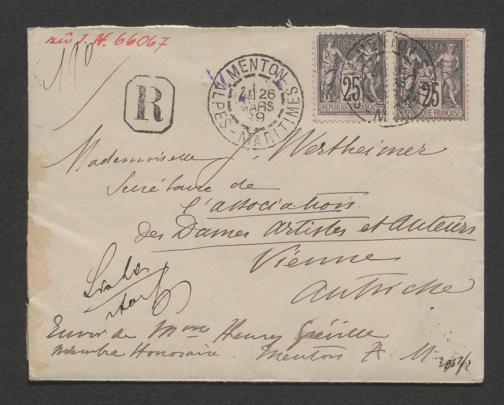 zu I. N. 66067
190
R
MENTON
26
MARS
89
ALPES-MARITIMES
POSTE
25
REPUBLIQUE FRANCAISE
MENTON
POSTE
25
REPUBLIQUE FRANCAISE
Mademoiselle J. Wertheimer
Secrétaire de
l'association
des Dames Artistes et Auteurs
Vienne
Autriche
Envoi de Mme Henry Gréville
membre Honoraire. Menton A. M.